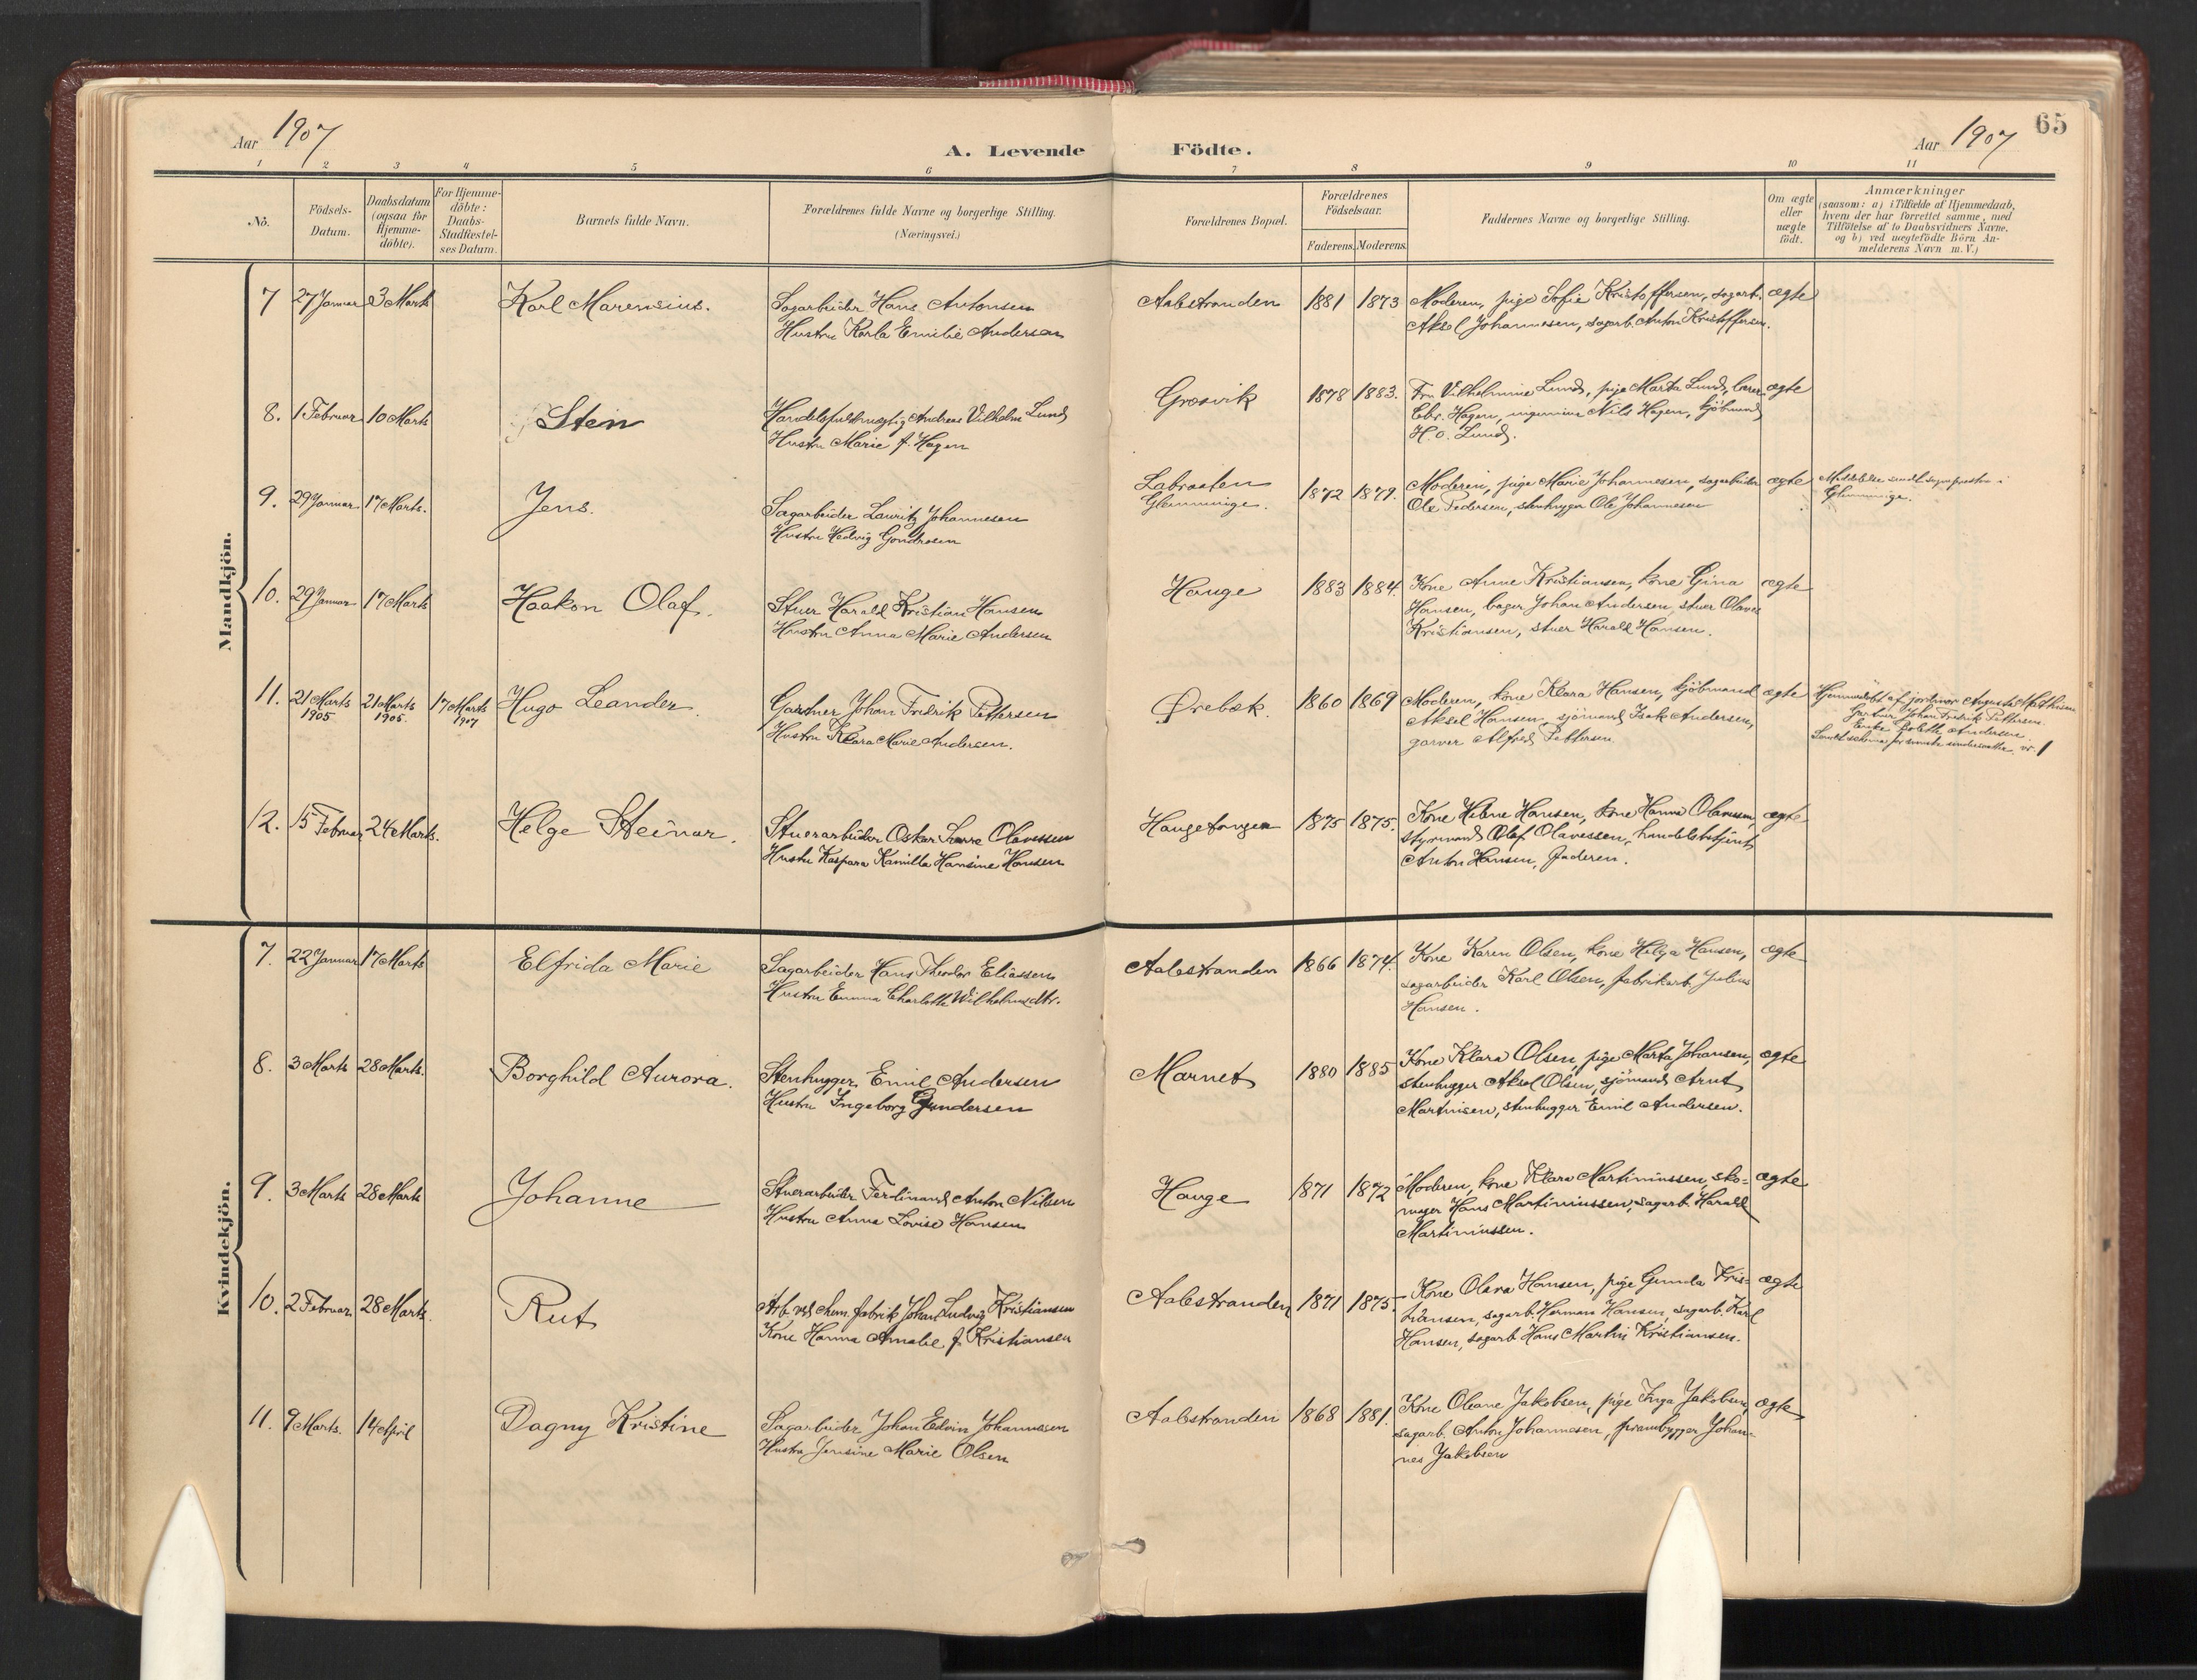 Aar 1907
A. Levende
Födte.
Aar 1907
65
1 2 3 4 5 6 7 8 9 10 11
No.
Födsels-
Datum.
Daabsdatum
(ogsaa for
Hjemme-
döbte).
For Hjemme-
döbte:
Daabs-
Stadfæstel-
ses Datum.
Barnets fulde Navn.
Forældrenes fulde Navne og borgerlige Stilling.
(Næringsvei.)
Forældrenes Bopæl.
Forældrenes
Födselsaar.
Faderens. Moderens.
Faddernes Navne og borgerlige Stilling.
Om ægte
eller
uægte
födt.
Anmærkninger
(saasom: a) i Tilfælde af Hjemmedaab,
hvem der har forrettet samme, med
Tilföielse af to Daabsvidners Navne,
og b) ved uægtefödte Börn An-
melderens Navn m. V.)
Mandkjön.
7 27 Januar 3 Marts Karl Marensius.
Sagarbeider Hans Antonsen
Hustru Karla Emilie Andersen
Aalestranden 1881 1873
Moderen, pige Sofie Kristoffersen, sagarb. ægte
Aksel Johannesen, sagarb. Anton Kristoffersen.
8. 1 Februar 10 Marts Sten
Handelsfuldmægtig Andreas Vilhelm Lund
Hustru Marie f. Hagen
Gresvik 1878 1883.
Fru Vilhelmine Lund, pige Marta Lund, ægte
Chr. Hagen, ingeniør Nils Hagen, kjöbmand
H. O. Lund.
9. 29 Januar 17 Marts. Jens.
Sagarbeider Lauritz Johannesen
Hustru Hedvig Gondrosen
Labraaten
Glemminge. 1872 1879.
Moderen, pige Marie Johannesen, sagarbeider ægte
Ole Pedersen, stenhugger Ole Johannesen
Meddelelse sendt sognepresten i
Glemminge.
10. 29 Januar 17 Marts Haakon Olaf.
Stuer Harald Kristian Hansen
Hustru Anna Marie Andersen
Hauge 1883 1884.
Kone Anne Kristiansen, kone Gina ægte
Hansen, bager Johan Andersen, stuer Olaves
Kristiansen, stuer Harald Hansen.
11. 21 Marts 1905 21 Marts 1905. 17 Marts 1907 Hugo Leander
Gartner Johan Fredrik Pettersen
Hustru Klara Marie Andersen.
Ørebæk. 1860 1869
Moderen, kone Klara Hansen, kjöbmand ægte
Aksel Hansen, sjömand Isak Andersen,
garver Alfred Pettersen.
Hjemmedöbt af jordmor Augusta Mathisen
Gartner Johan Fredrik Pettersen
Enke Bolette Andersen
nr. 1
12. 15 Februar 24 Marts. Helge Steinar.
Stuerarbeider Oskar Olavessen
Hustru Kaspara Kamilla Hansine Hansen
Haugetangen 1875 1875.
Kone Helene Hansen, kone Hanna Olavesen, ægte
styrmand Olaf Olavessen, handelsbetjent
Anton Hansen, Faderen.
Kvindekjön.
7. 22 Januar 17 Marts Elfrida Marie
Sagarbeider Hans Theodor Eliassen
Hustru Emma Charlotte Wilhelmsdtr.
Aalestranden 1866 1874.
Kone Karen Olsen, kone Helga Hansen, ægte
sagarbeider Karl Olsen, fabrikarb. Julius
Hansen.
8. 3 Marts 28 Marts. Borghild Aurora.
Stenhugger Emil Andersen
Hustru Ingeborg Gundersen
Marnet 1880 1885
Kone Klara Olsen, pige Marta Johansen, ægte
stenhugger Aksel Olsen, sjömand Arnt
Martinisen, stenhugger Emil Andersen.
9. 3 Marts 28 Marts Johanne
Stuerarbeider Ferdinand Anton Nilsen
Hustru Anna Lovise Hansen
Hauge 1871 1872
Moderen, kone Klara Martiniussen, sko- ægte
mager Hans Martiniussen, sagarb. Harald
Martiniussen.
10. 2 Februar 28 Marts. Rut
Arb. ved chem. fabrik Johan Ludvig Kristiansen
Kone Hanna Amalie f. Kristiansen
Aalestranden 1871 1875.
Kone Olava Hansen, pige Gunda Kris- ægte
tiansen, sagarb. Herman Hansen, sagarb. Karl
Hansen, sagarb. Hans Martin Kristiansen.
11. 9 Marts. 14 April Dagny Kristine
Sagarbeider Johan Edvin Johannesen
Hustru Jensine Marie Olsen
Aalestranden 1868 1881.
Kone Oleane Jakobsen, pige Inga Jakobsen, ægte
sagarb. Anton Johannesen, prambygger Johan-
nes Jakobsen